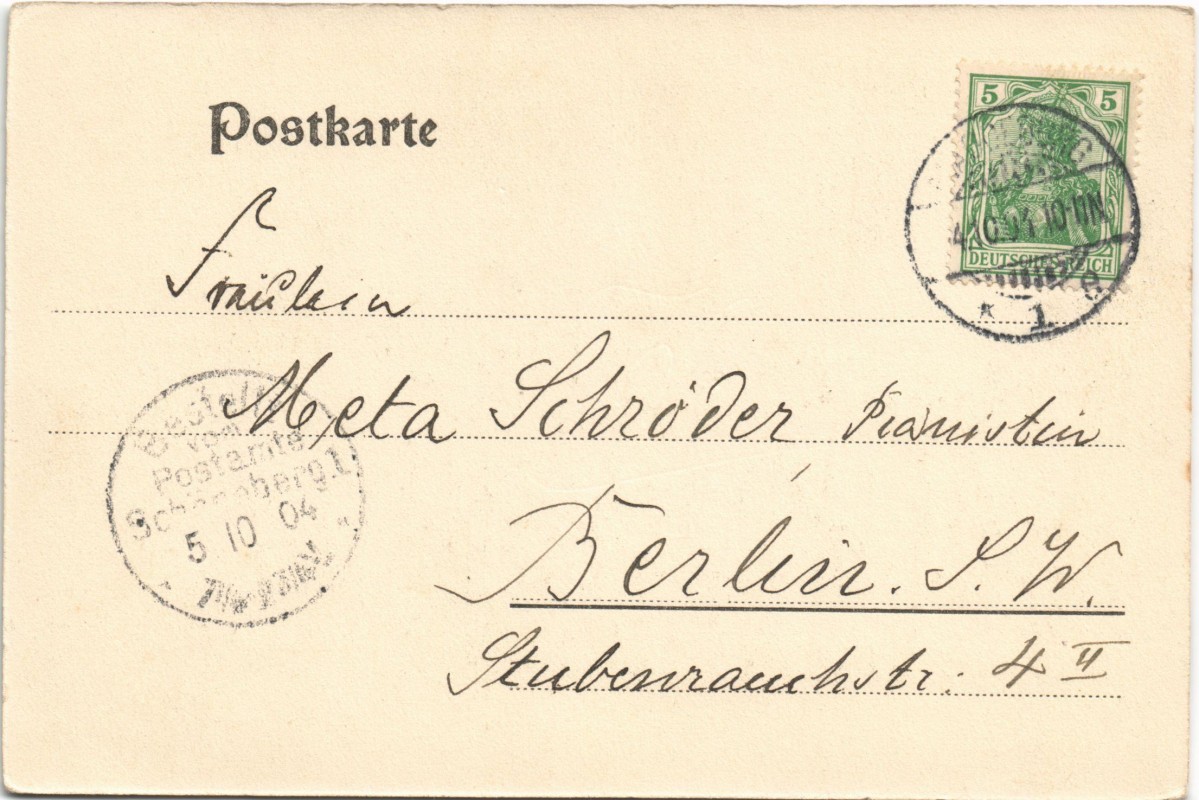 Postkarte
5 5
DEUTSCHES REICH
4.10.04.10-11N.
* 1. d
Fräulein
Meta Schröder Pianistin
Berlin. S. W.
Stubenrauchstr. 4 II
Bestellt
vom
Postamte
Schöneberg.1
5 10 04